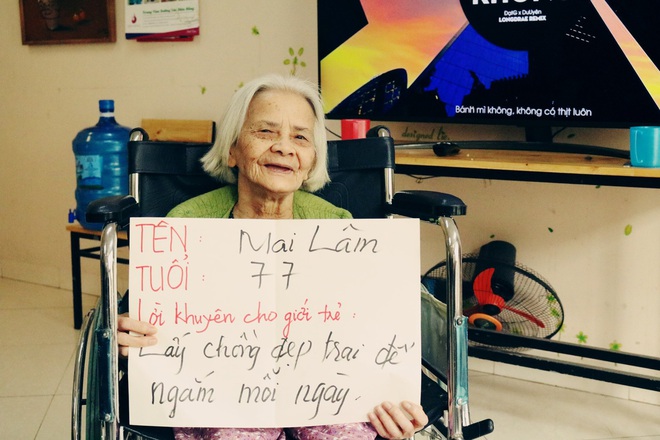 KHÔNG
ĐạtG x DuUyên
LONGDRAE REMIX
Bánh mì không, không có thịt luôn
TÊN : Mai Lâm
TUỔI : 77
Lời khuyên cho giới trẻ :
Lấy chồng đẹp trai để
ngắm mỗi ngày.